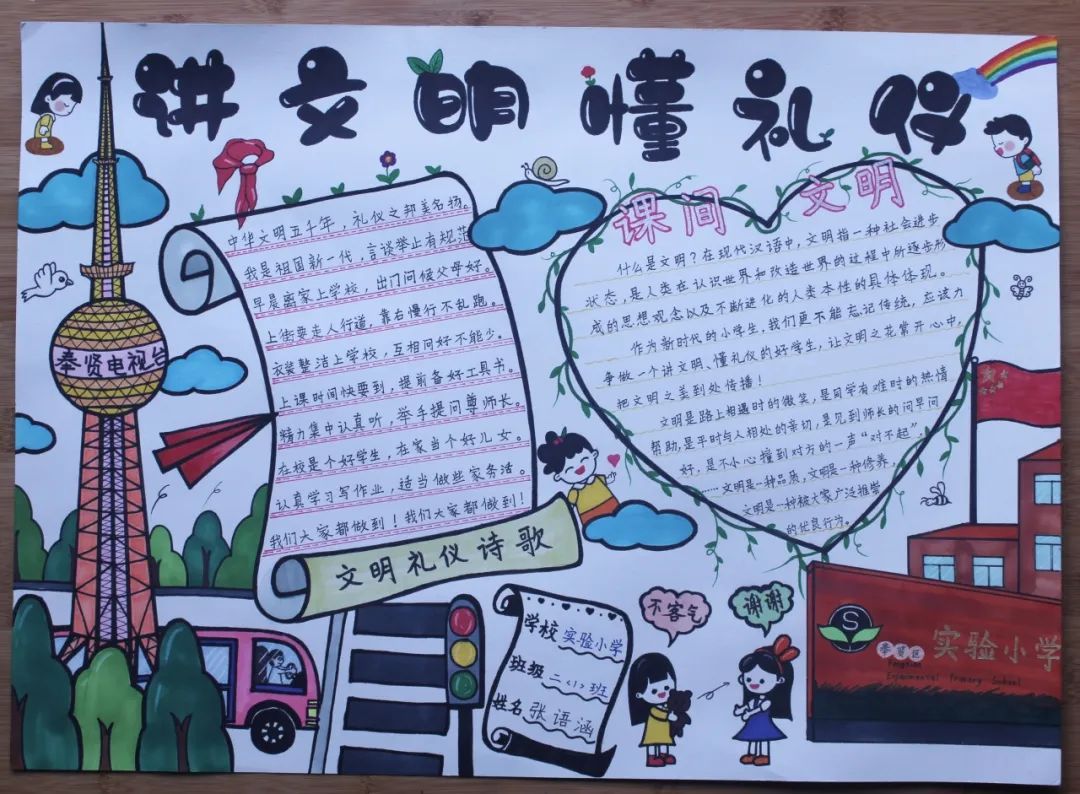 讲文明懂礼仪
中华文明五千年，礼仪之邦美名扬。
我是祖国新一代，言谈举止有规范
早晨离家上学校，出门问候父母好。
上街要走人行道，靠右慢行不乱跑。
衣装整洁上学校，互相问好不能少。
上课时间快要到，提前备好工具书。
精力集中认真听，举手提问尊师长。
在校是个好学生，在家当个好儿女。
认真学习写作业，适当做些家务活。
我们大家都做到！我们大家都做到！
文明礼仪诗歌
课间文明
什么是文明？在现代汉语中，文明指一种社会进步
状态，是人类在认识世界和改造世界的过程中所逐步形
成的思想观念以及不断进化的人类本性的具体体现。
作为新时代的小学生，我们更不能忘记传统，应该力
争做一个讲文明、懂礼仪的好学生，让文明之花常开心中，
把文明之美到处传播！
文明是路上相遇时的微笑，是同学有难时的热情
帮助，是平时与人相处的亲切，是见到师长的问早问
好，是不小心撞到对方的一声“对不起”，
……文明是一种品质，文明是一种修养，
文明是一种被大家广泛推崇
的优良行为。
奉贤电视台
学校 实验小学
班级 二〈1〉班
姓名 张语涵
不客气
谢谢
S
奉贤区 实验小学
Fengxian
Experimental Primary School